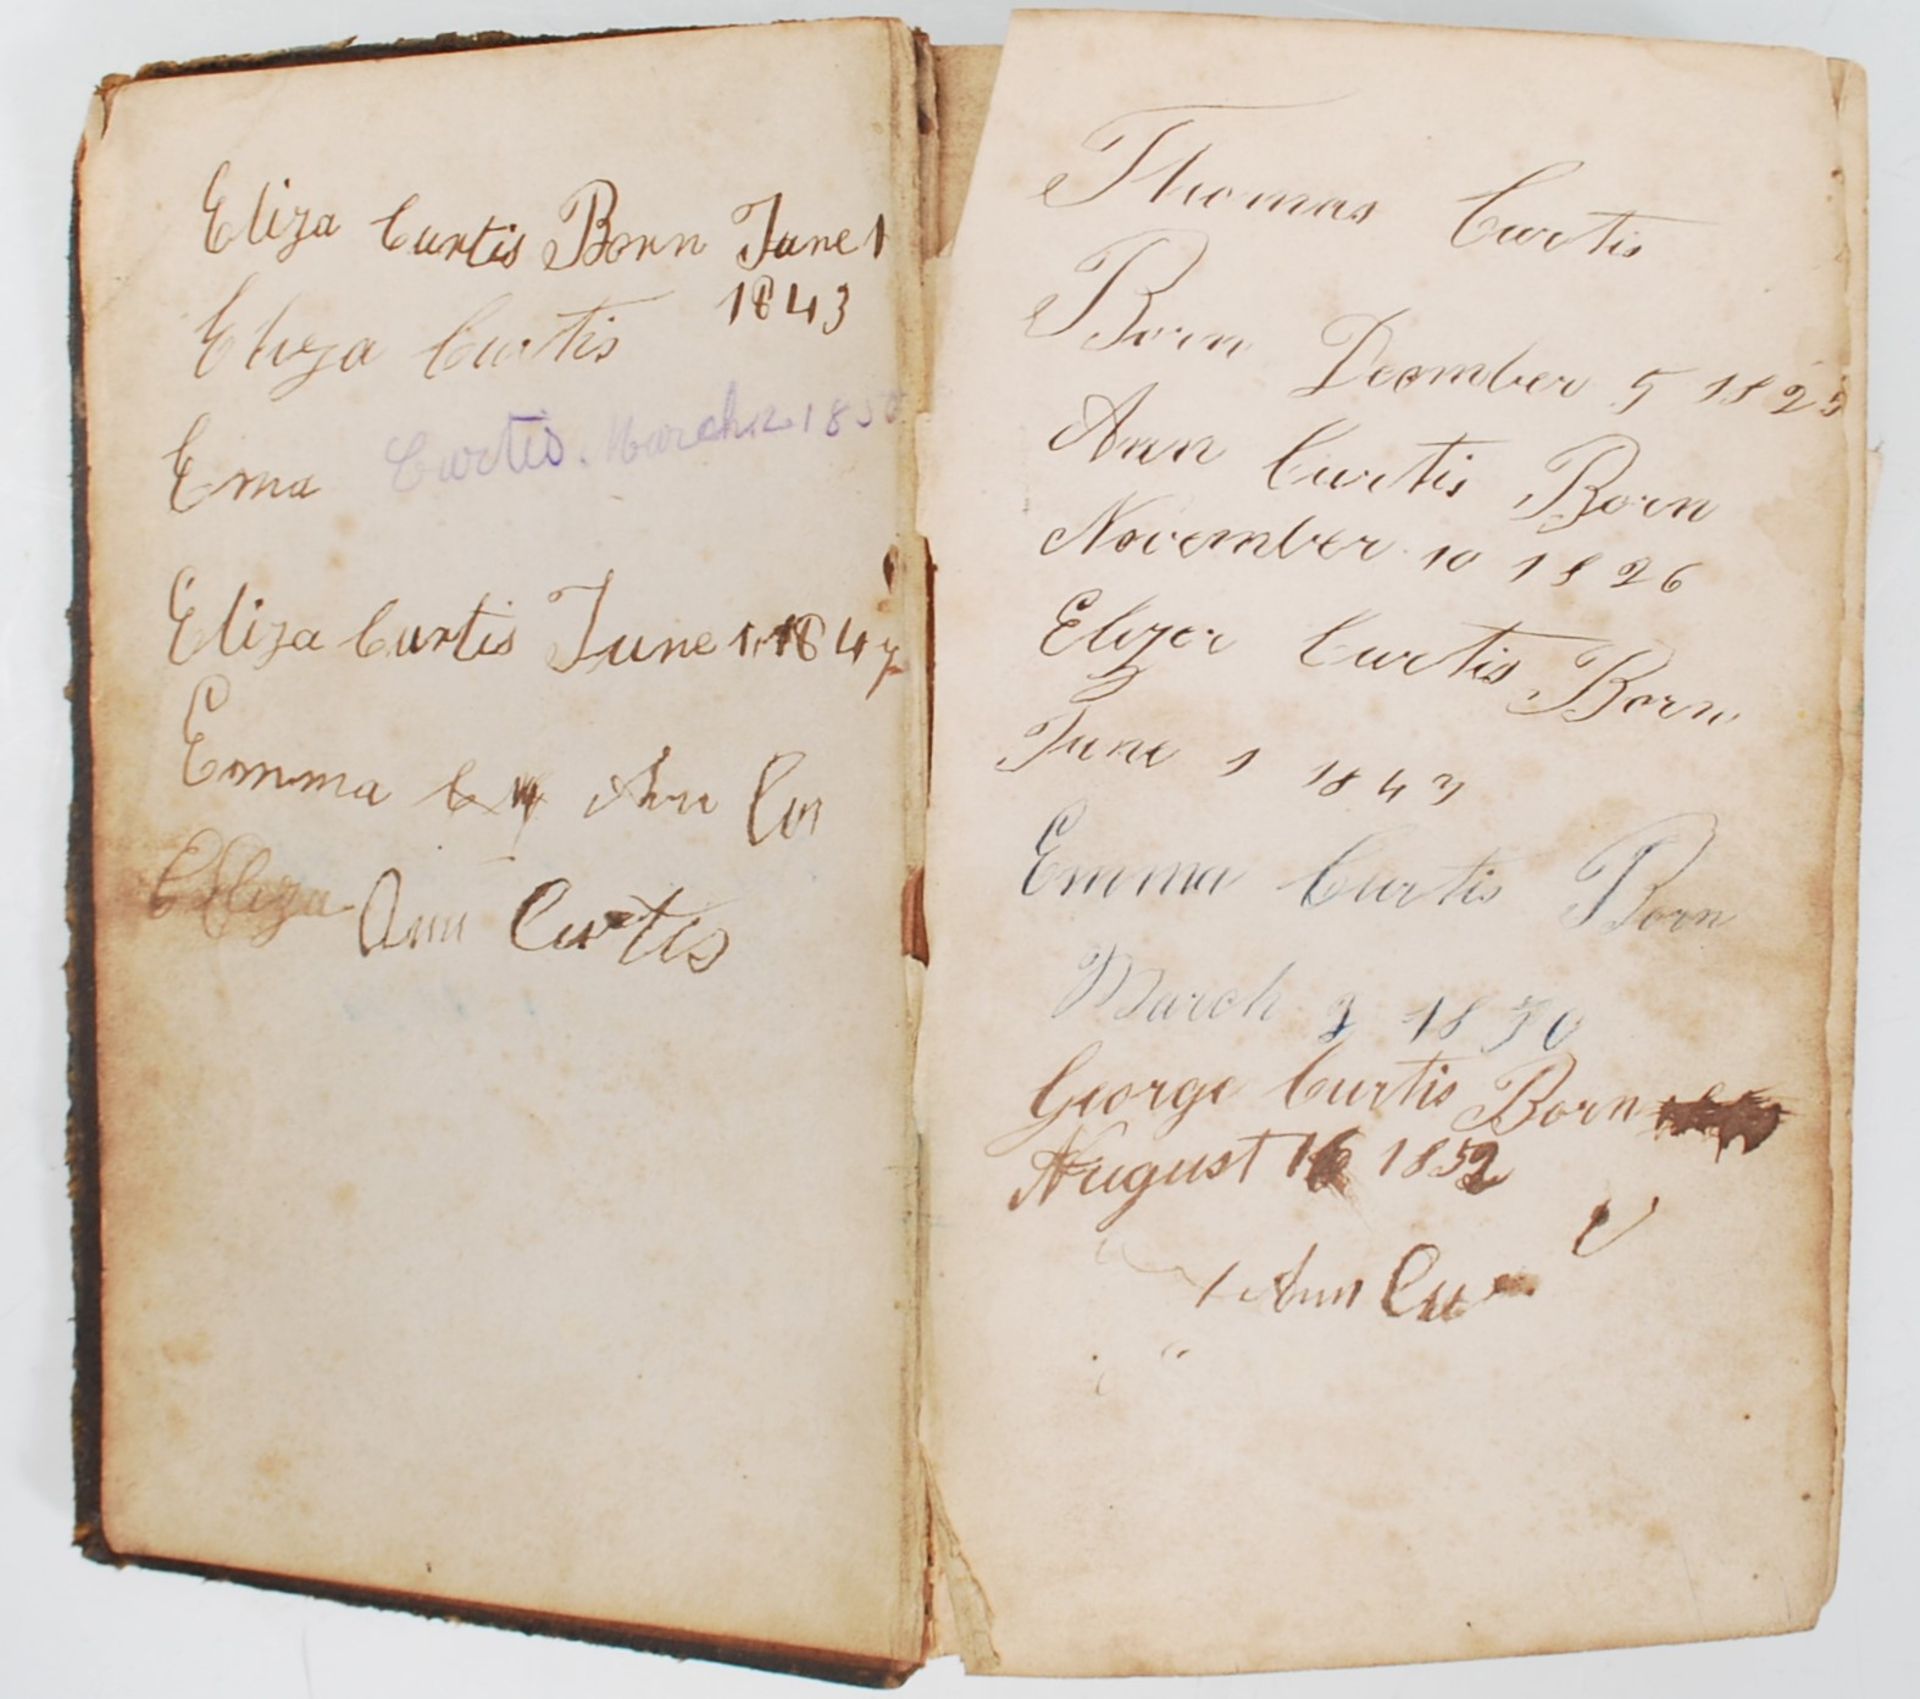 Eliza Curtis Born June 1
1843
Eliza Curtis
Ema Curtis. March 2 1850
Eliza Curtis June 1, 1847
Emma Ann Cur
Elliza Ann Curtis
Thomas Curtis
Born Decmber 5 1825
Ann Curtis Born
November 10 1826
Elizer Curtis Born
June 1 1843
Emma Curtis Born
March 2 1850
George Curtis Born
August 16 1852
Ann Cu